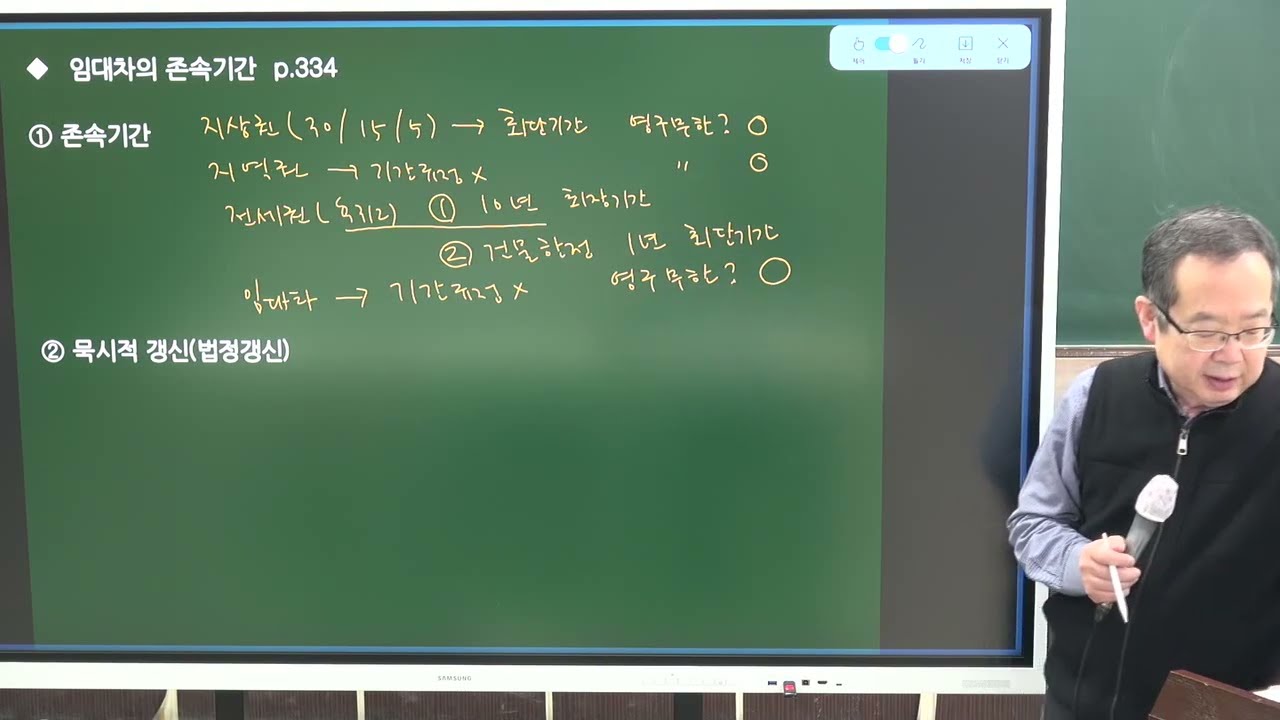 ◆ 임대차의 존속기간 p.334
① 존속기간
지상권 (30/15/5) → 최단기간 영구무한? ○
지역권 → 기간규정 × 〃 ○
전세권 ( ① 10년 최장기간
② 건물한정 1년 최단기간
임대차 → 기간규정 × 영구무한? ○
② 묵시적 갱신(법정갱신)
제어
필기
저장
닫기
SAMSUNG